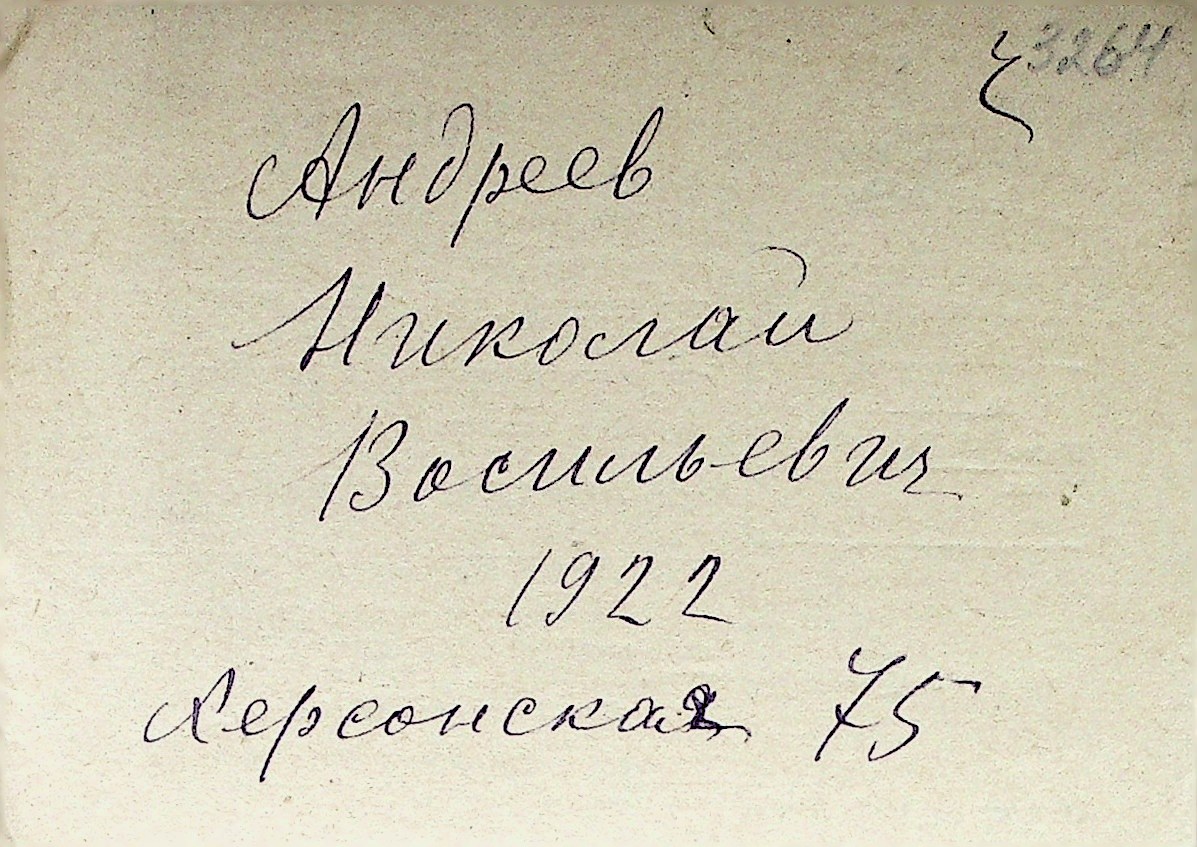 3264
Андреев
Николай
Васильевич
1922
Херсонская 75